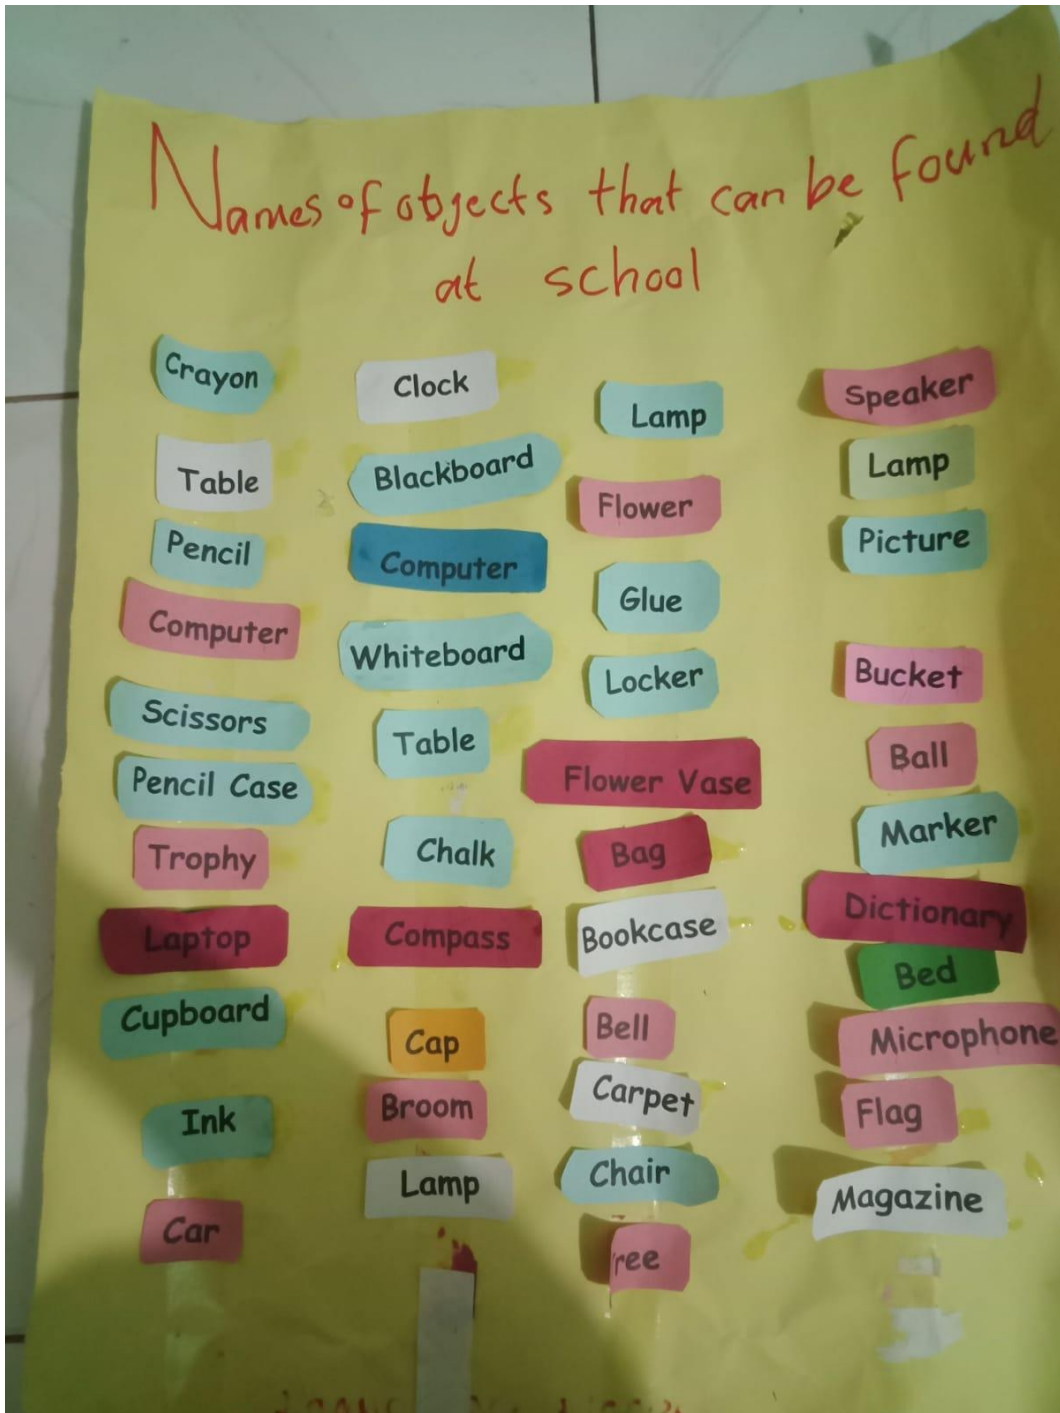 Names of objects that can be found
at school
Crayon
Table
Pencil
Computer
Scissors
Pencil Case
Trophy
Laptop
Cupboard
Ink
Car
Clock
Blackboard
Computer
Whiteboard
Table
Chalk
Compass
Cap
Broom
Lamp
Lamp
Flower
Glue
Locker
Flower Vase
Bag
Bookcase
Bell
Carpet
Chair
ree
Speaker
Lamp
Picture
Bucket
Ball
Marker
Dictionary
Bed
Microphone
Flag
Magazine